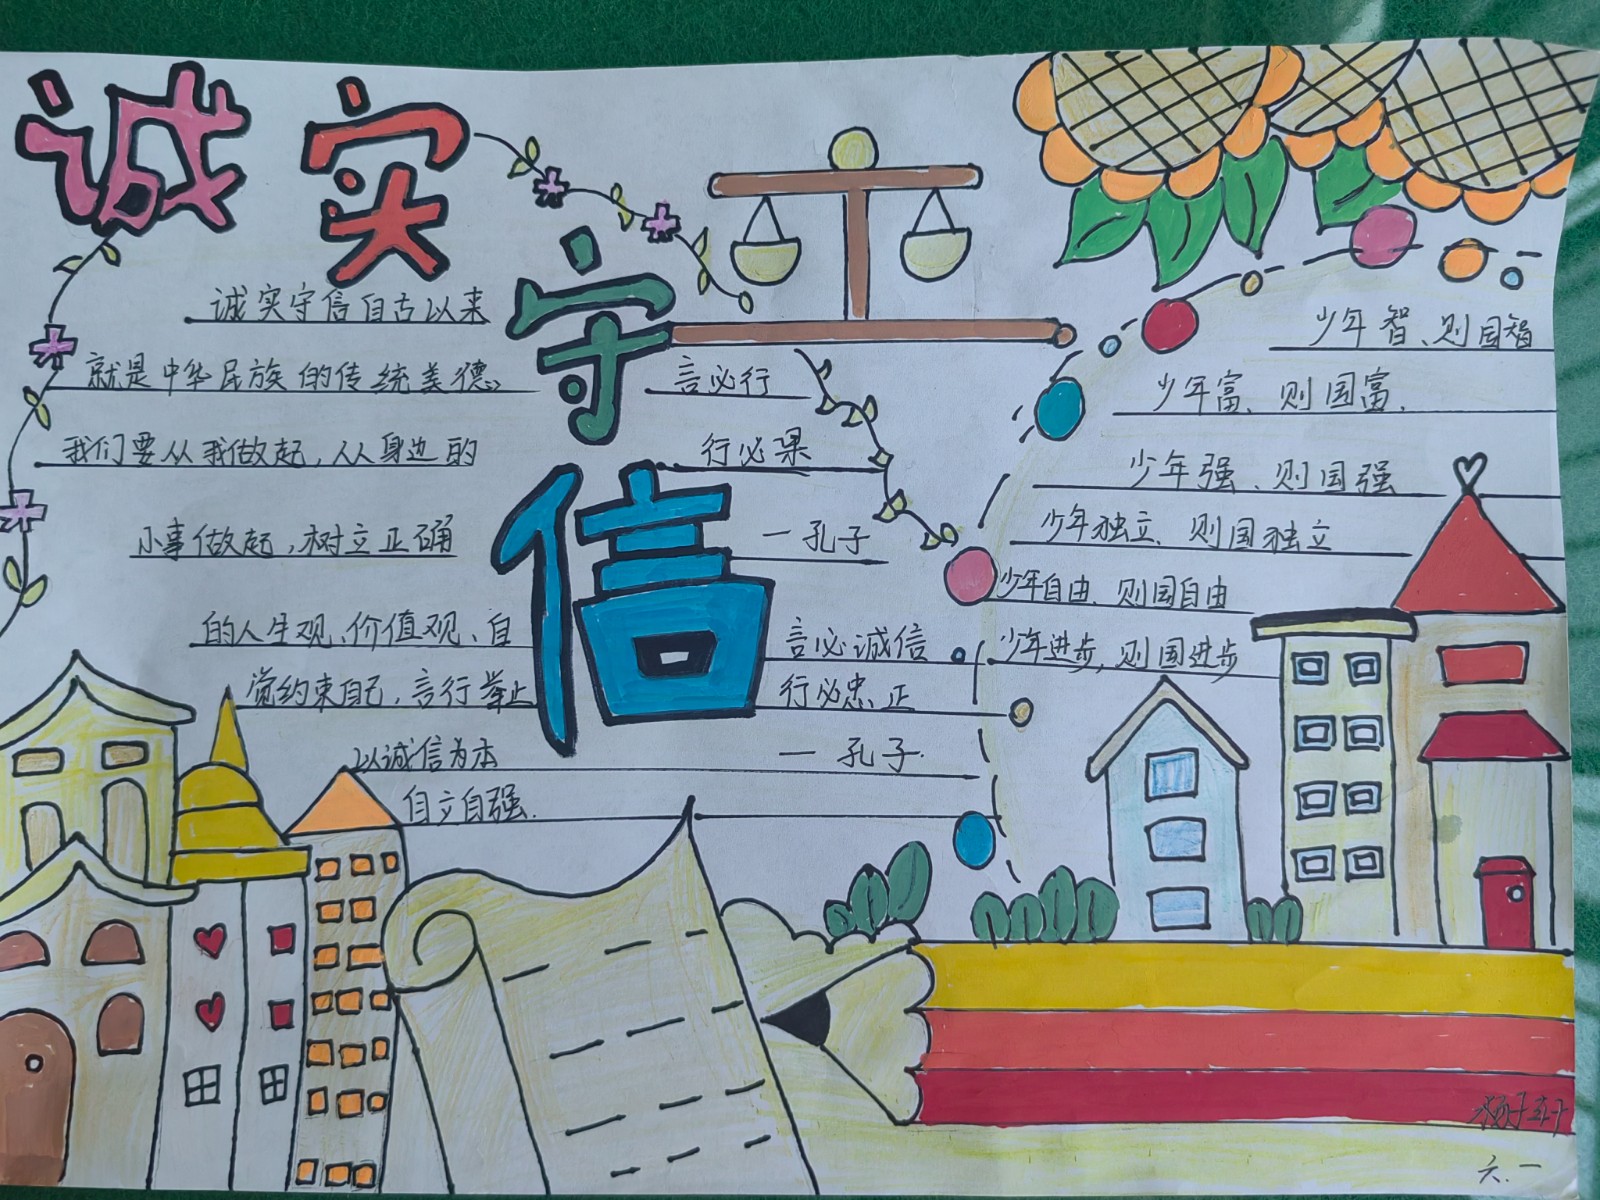 诚实守信
诚实守信自古以来
就是中华民族的传统美德。
我们要从我做起，从身边的
小事做起，树立正确
的人生观、价值观、自
觉约束自己，言行举止
以诚信为本
自立自强.
言必行
行必果
一孔子
言必诚信
行必忠正
一 孔子.
少年智、则国智
少年富、则国富.
少年强、则国强
少年独立、则国独立
少年自由、则国自由
少年进步，则国进步
六.一